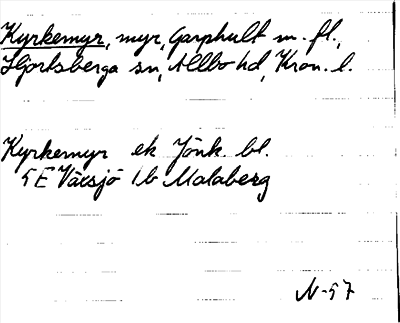 Kyrkemyr, myr, Garphult m. fl.,
Hjortsberga sn, Allbo hd, Kron. l.
Kyrkemyr ek Jönk. bl.
5E Värsjö 1b Malaberg
N-57